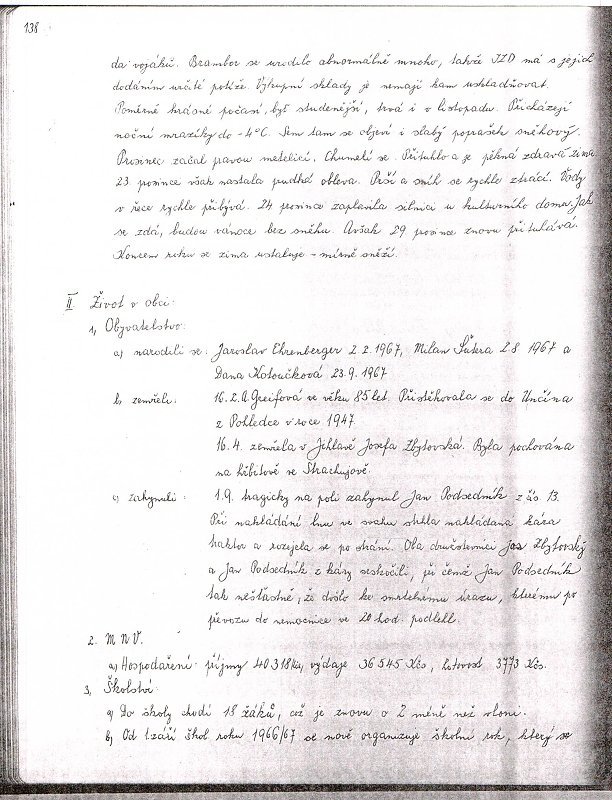 138
da vojáků. Brambor se urodilo abnormálně mnoho, takže JZD má s jejich
dodáním určité potíže. Výkupní sklady je nemají kam uskladňovat.
Poměrně krásné počasí, byť studenější, trvá i v listopadu. Přicházejí
noční mrazíky do -4°C. Sem tam se objeví i slabý poprašek sněhový.
Prosinec začal pravou metelicí. Chumelí se. Přituhlo a je pěkná zdravá zima
23. prosince však nastala prudká obleva. Prší a sníh se rychle ztrácí. Vody
v řece rychle přibývá. 24 prosince zaplavila silnici u kulturního domu. Jak
se zdá, budou vánoce bez sněhu. Avšak 29 prosince znovu přituhává.
Koncem roku se zima ustaluje - mírně sněží.
II Život v obci:
1, Obyvatelstvo:
a) narodili se: Jaroslav Ehrenberger 2 2. 1967, Milan Šutera 2 8 1967 a
Dana Kotoučková 23. 9. 1967
b, zemřeli: 16. 2. A. Greifová ve věku 85 let. Přistěhovala se do Unčína
z Pohledce v roce 1947.
16. 4. zemřela v Jihlavě Josefa Zbytovská. Byla pochována
na hřbitově ve Strachujově.
c, zahynuli: 1. 9. tragicky na poli zahynul Jan Podsedník z čo. 13.
Při nakládání lnu ve svahu strhla nakládaná kára
traktor a rozjela se po stráni. Oba družstevníci Jos Zbytovský
a Jan Podsedník z káry seskočili, při čemž Jan Podsedník
tak nešťastně, že došlo ke smrtelnému úrazu, kterému po
převozu do nemocnice ve 20 hod. podlehl.
2. M N V.
a) Hospodaření: příjmy 40318 Kčs, výdaje 36 545 Kčs, hotovost 3773 Kčs.
3, Školství:
a) Do školy chodí 18 žáků, což je znovu o 2 méně než vloni.
b) Od 1. září škol roku 1966/67 se nově organizuje školní rok, který se